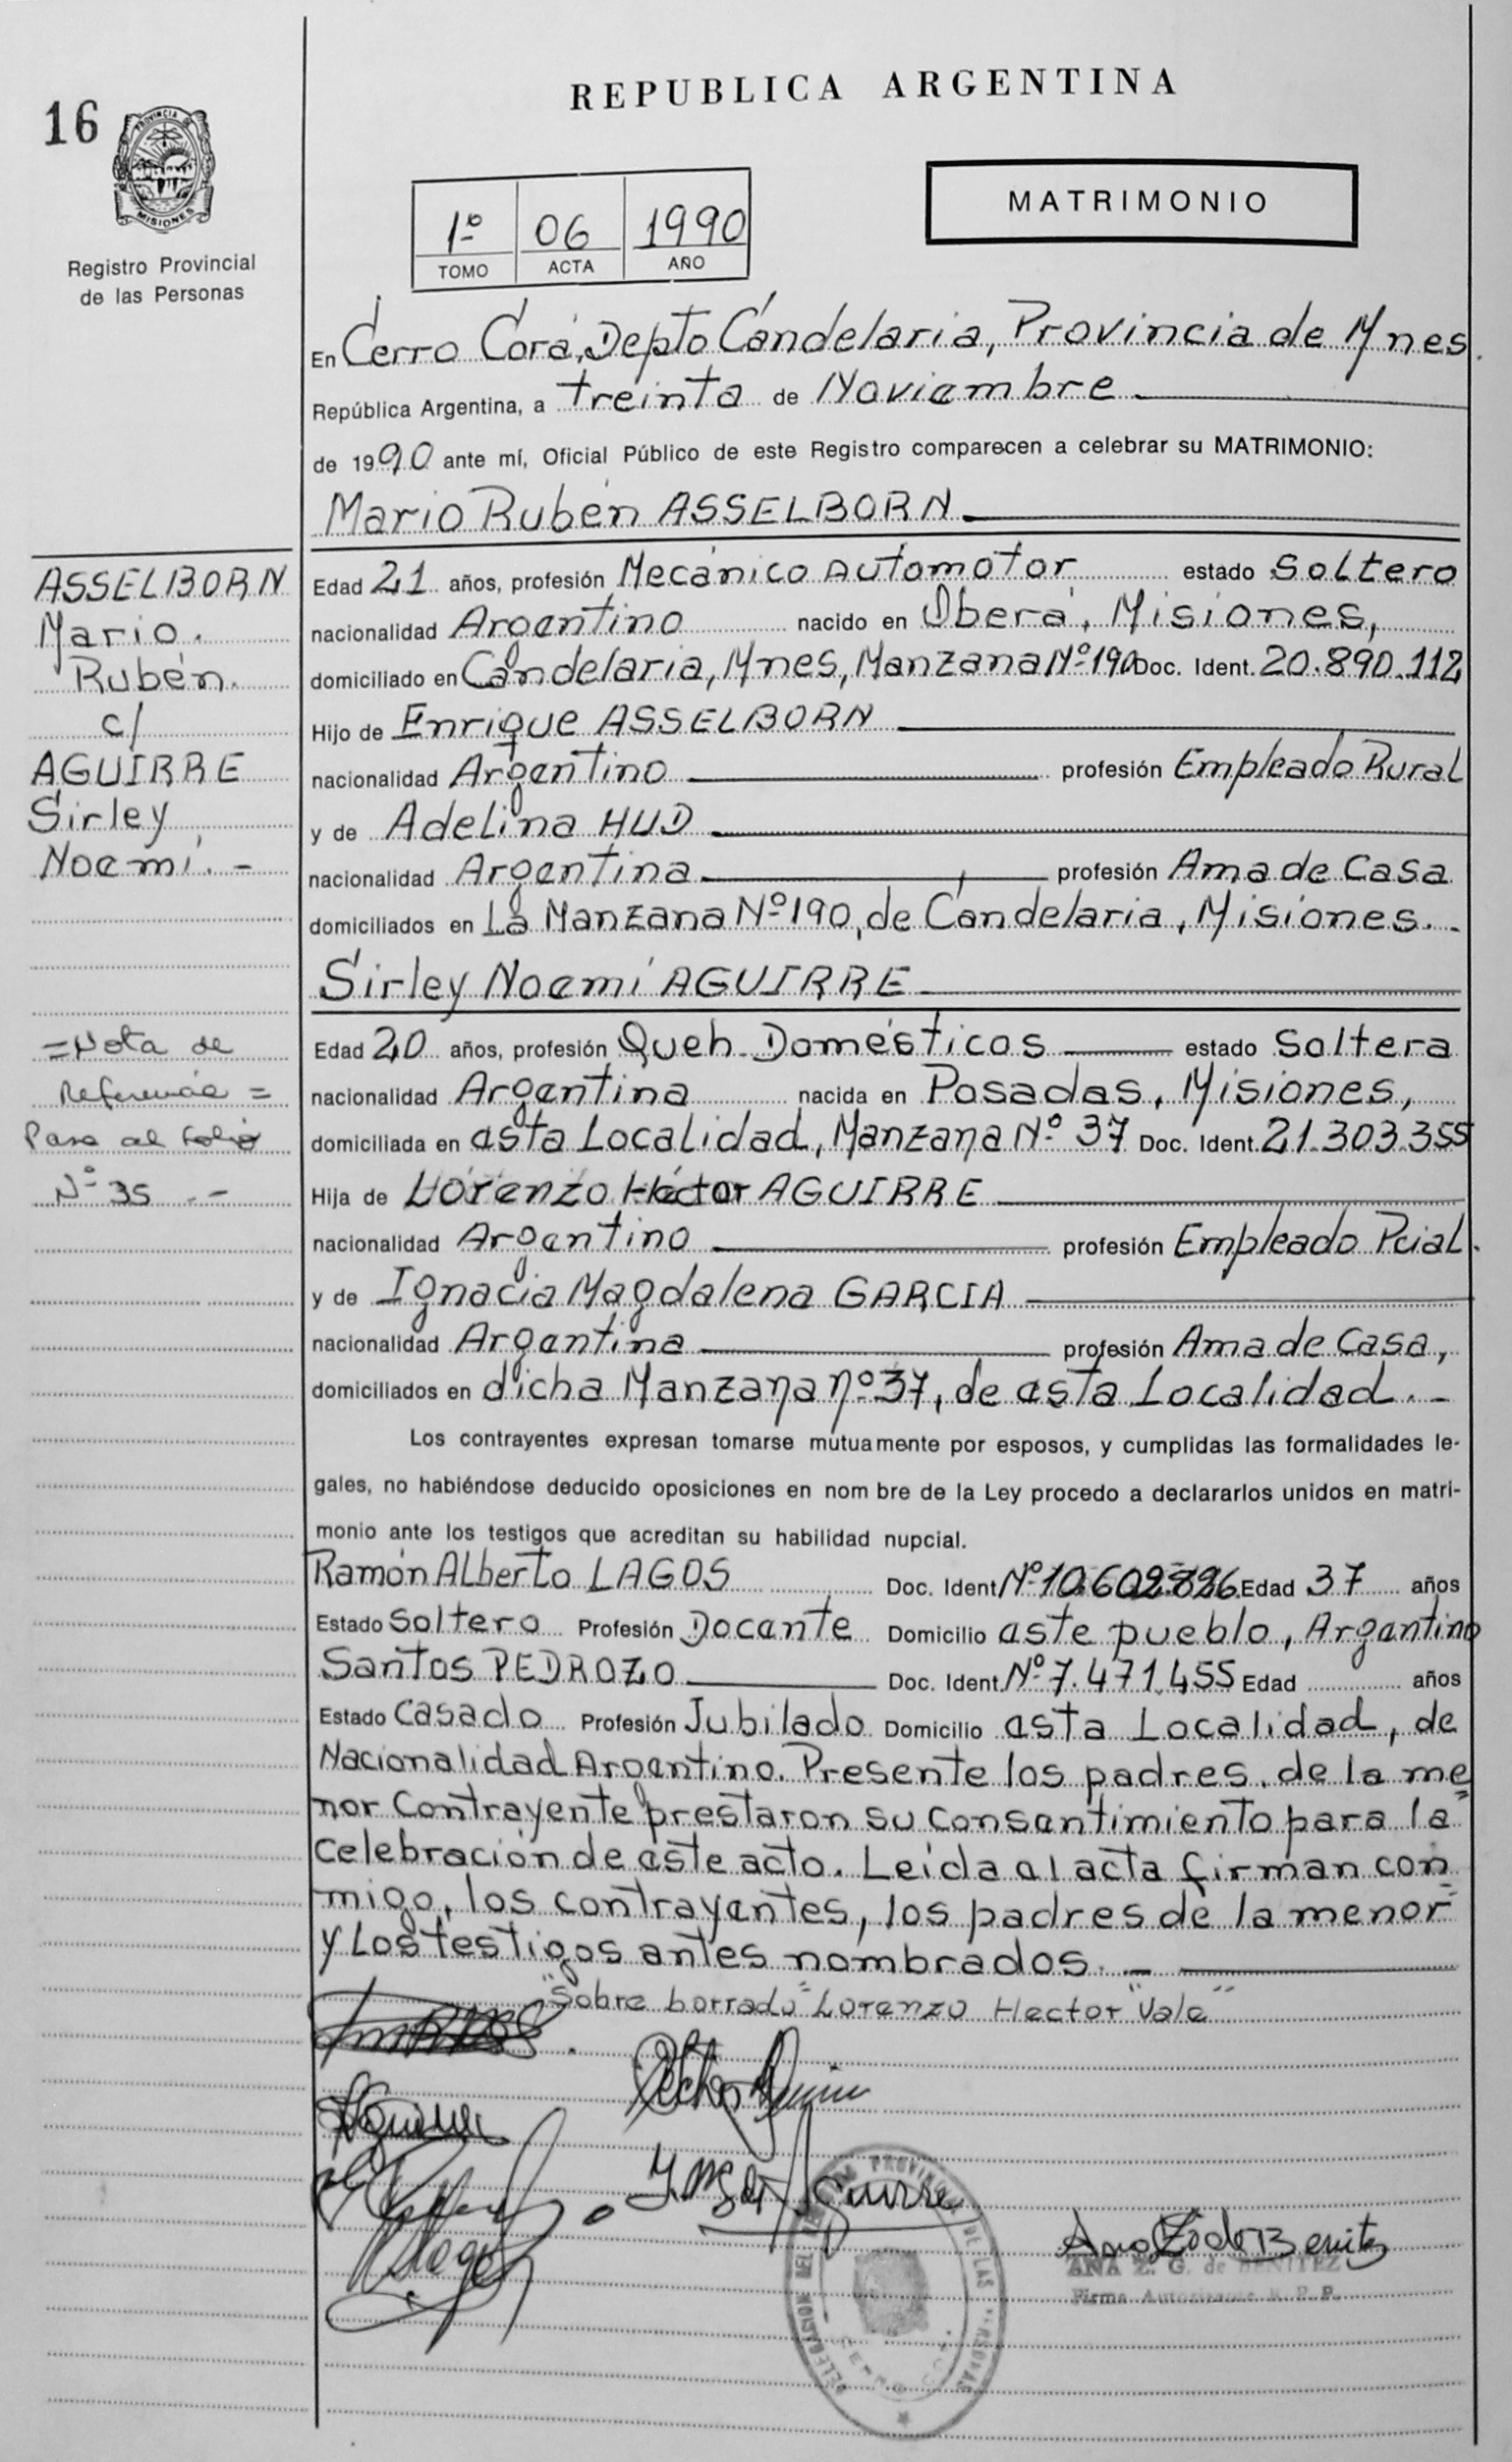 16
PROVINCIA DE
MISIONES
Registro Provincial
de las Personas
REPUBLICA ARGENTINA
MATRIMONIO
1º 06 1990
TOMO ACTA AÑO
En Cerro Corá, Depto Candelaria, Provincia de Mnes.
República Argentina, a treinta de Noviembre
de 1990 ante mí, Oficial Público de este Registro comparecen a celebrar su MATRIMONIO:
Mario Rubén ASSELBORN
Edad 21 años, profesión Mecánico Automotor estado Soltero
nacionalidad Argentino nacido en Oberá, Misiones,
domiciliado en Candelaria, Mnes, Manzana Nº 190 Doc. Ident. 20.890.112
Hijo de Enrique ASSELBORN
nacionalidad Argentino profesión Empleado Rural
y de Adelina HUD
nacionalidad Argentina profesión Ama de Casa
domiciliados en La Manzana Nº 190, de Candelaria, Misiones.-
Sirley Noemí AGUIRRE
Edad 20 años, profesión Queh. Domésticos estado Soltera
nacionalidad Argentina nacida en Posadas, Misiones,
domiciliada en esta Localidad, Manzana Nº 37 Doc. Ident. 21.303.355
Hija de Lorenzo Héctor AGUIRRE
nacionalidad Argentino profesión Empleado Pcial.
y de Ignacia Magdalena GARCIA
nacionalidad Argentina profesión Ama de Casa,
domiciliados en dicha Manzana nº 37, de esta Localidad.-
Los contrayentes expresan tomarse mutuamente por esposos, y cumplidas las formalidades le-
gales, no habiéndose deducido oposiciones en nom bre de la Ley procedo a declararlos unidos en matri-
monio ante los testigos que acreditan su habilidad nupcial.
Ramón Alberto LAGOS Doc. Ident. Edad 37 años
Estado Soltero Profesión Docente Domicilio este pueblo, Argentino
Santos PEDROZO Doc. Ident. Nº 7.471.455 Edad años
Estado Casado Profesión Jubilado Domicilio esta Localidad, de
Nacionalidad Argentino. Presente los padres de la me=
nor Contrayente prestaron su consentimiento para la
celebración de este acto. Leída al acta firman con=
migo, los contrayentes, los padres de la menor
y Los testigos antes nombrados.-
"Sobre borrado" Lorenzo Hector "Vale"
ASSELBORN
Mario
Rubén.
c/
AGUIRRE
Sirley
Noemí.-
=Nota de
Referencia=
Pasa al folio
Nº 35.-
Ana Z. de Benitez
ANA Z. G. de BENITEZ
Firma Autorizante R. P. P.
DELEGACION DEL REGISTRO PROVINCIAL DE LAS PERSONAS